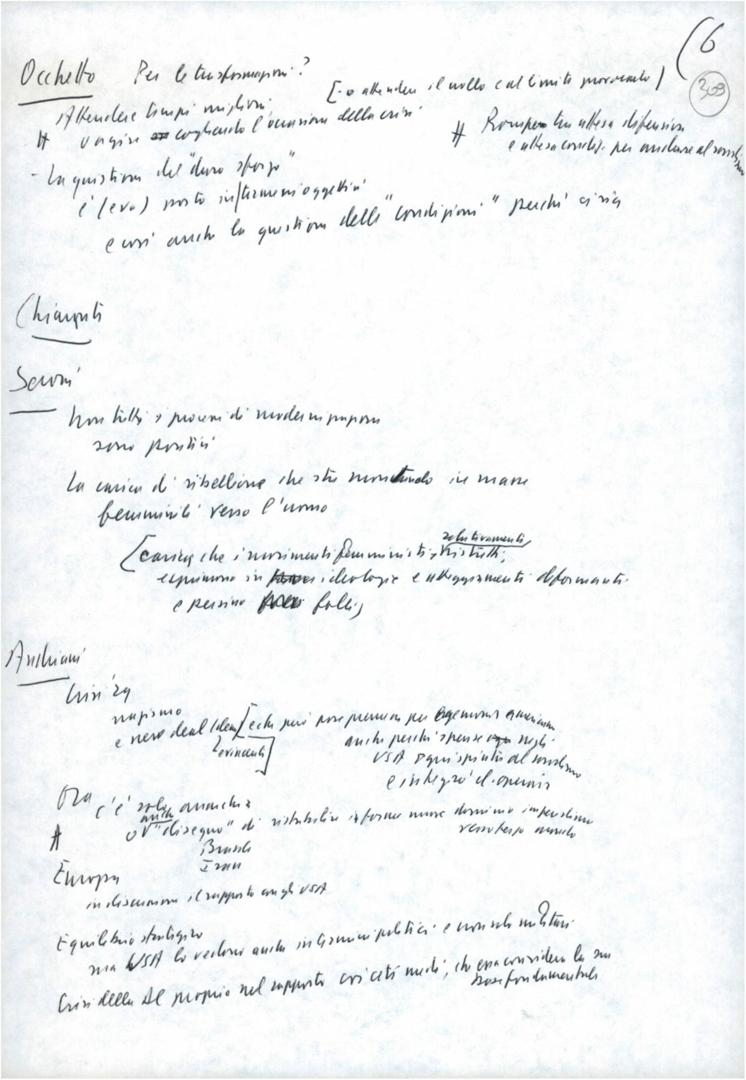 (6
303
Occhetto Per le trasformazioni?
[- o attendere il crollo e al limite provocarlo]
Attendere tempi migliori
# o agire cogliendo l'occasione della crisi
# Rompere tra attesa difensiva
e attesa per andare al
- La questione del "duro sforzo"
è (era) posto in termini oggettivi
e così anche la questione delle "condizioni" perché ci sia
Chiaromonte
Seroni
Non tutti i processi di modernizzazione
sono positivi
La carica di ribellione che sta montando in masse
femminili verso l'uomo
[carica che i movimenti femministi, relativamente ristretti,
esprimono in ideologie e atteggiamenti deformanti
e persino folli]
Andriani
Crisi '29
nazismo
e new deal [che però pose premesse per egemonia americana
vincenti] anche perché spense negli
USA ogni spinta al socialismo
e integrò cl. operaia
Ora c'è solo anarchia
# o anche "disegno" di ristabilire in forme nuove dominio imperialismo
verso terzo mondo
Brasile
Iran
Europa
in discussione il rapporto con gli USA
Equilibrio strategico
ma USA lo vedono anche in termini politici e non solo militari
Crisi della DC proprio nel rapporto coi ceti medi, che essa considera la sua
base fondamentale